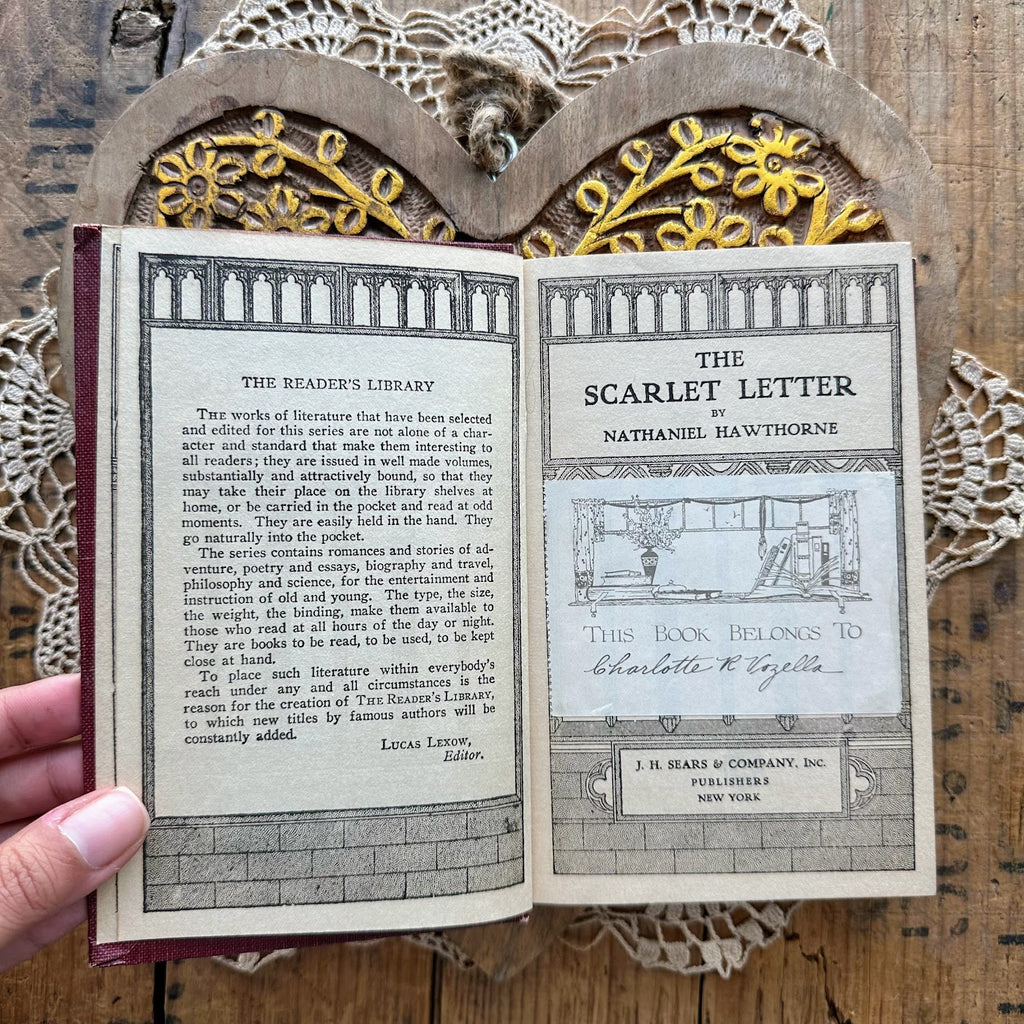 THE READER'S LIBRARY
THE works of literature that have been selected
and edited for this series are not alone of a char-
acter and standard that make them interesting to
all readers; they are issued in well made volumes,
substantially and attractively bound, so that they
may take their place on the library shelves at
home, or be carried in the pocket and read at odd
moments. They are easily held in the hand. They
go naturally into the pocket.
The series contains romances and stories of ad-
venture, poetry and essays, biography and travel,
philosophy and science, for the entertainment and
instruction of old and young. The type, the size,
the weight, the binding, make them available to
those who read at all hours of the day or night.
They are books to be read, to be used, to be kept
close at hand.
To place such literature within everybody's
reach under any and all circumstances is the
reason for the creation of THE READER'S LIBRARY,
to which new titles by famous authors will be
constantly added.
LUCAS LEXOW,
Editor.
THE
SCARLET LETTER
BY
NATHANIEL HAWTHORNE
THIS BOOK BELONGS TO
Charlotte R Vozella
J. H. SEARS & COMPANY, INC.
PUBLISHERS
NEW YORK